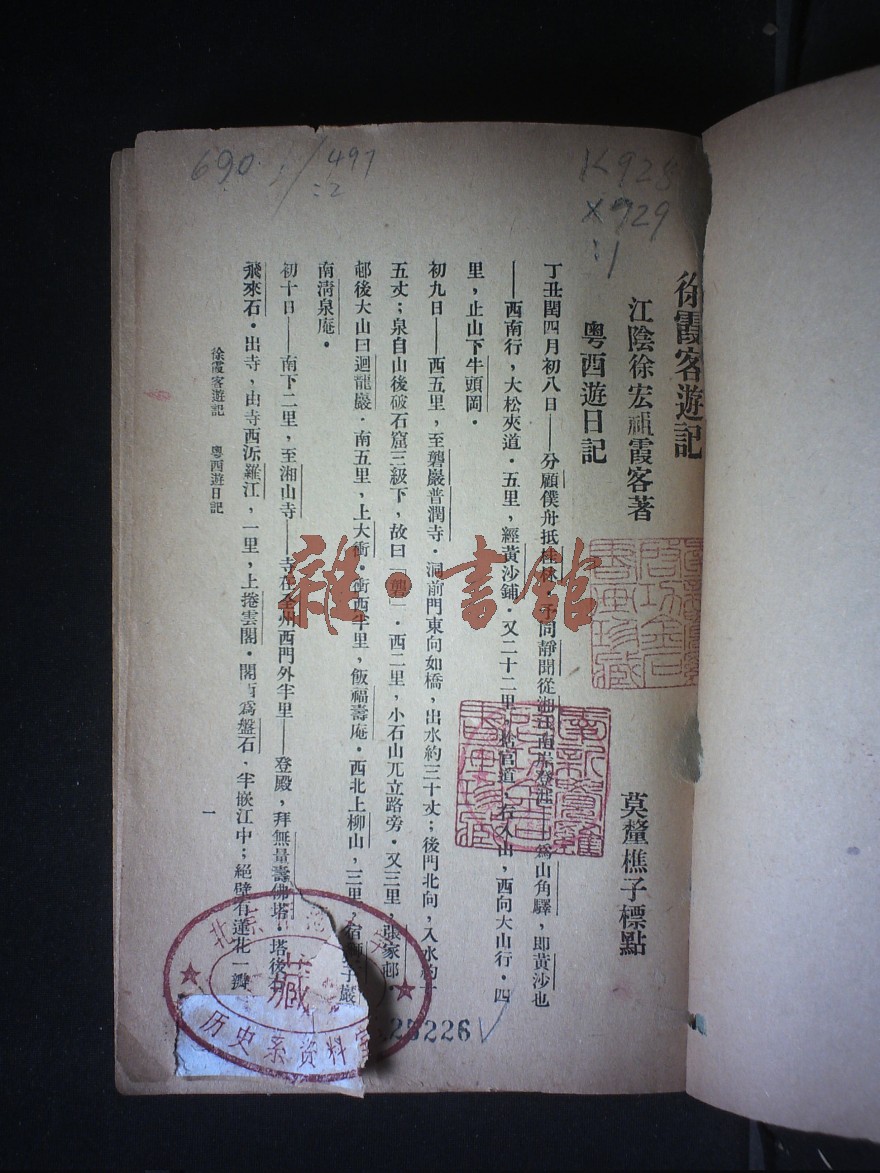 690
497
:2
K928
X929
:1
徐霞客遊記
江陰徐宏祖霞客著
莫釐樵子標點
粵西遊日記
丁丑閏四月初八日——分顧僕舟抵桂林，予同靜聞從 爲山角驛，即黃沙也
——西南行，大松夾道．五里，經黃沙鋪．又二十二里， 官道，右入山，西向大山行．四
里，止山下牛頭岡．
初九日——西五里，至礱巖普潤寺．洞前門東向如橋，出水約三十丈；後門北向，入水約十
五丈；泉自山後破石窟三級下，故曰「礱」．西二里，小石山兀立路旁．又三里，張家邨．
邨後大山曰迴龍巖．南五里，上大衝．衝西半里，飯福壽庵．西北上柳山，三里，宿 子巖
南清泉庵．
初十日——南下二里，至湘山寺——寺在全州西門外半里——登殿，拜無量壽佛塔．塔後有
飛來石．出寺，由寺西泝羅江，一里，上捲雲閣．閣西爲盤石．半嵌江中；絕壁有蓮花一瓣
徐霞客遊記　粵西遊日記
一
雜·書館
北京
藏書
历史系资料室
25226